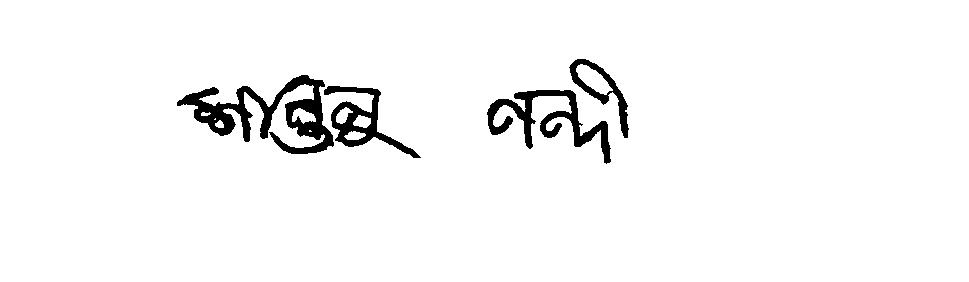 শান্তনু নন্দী